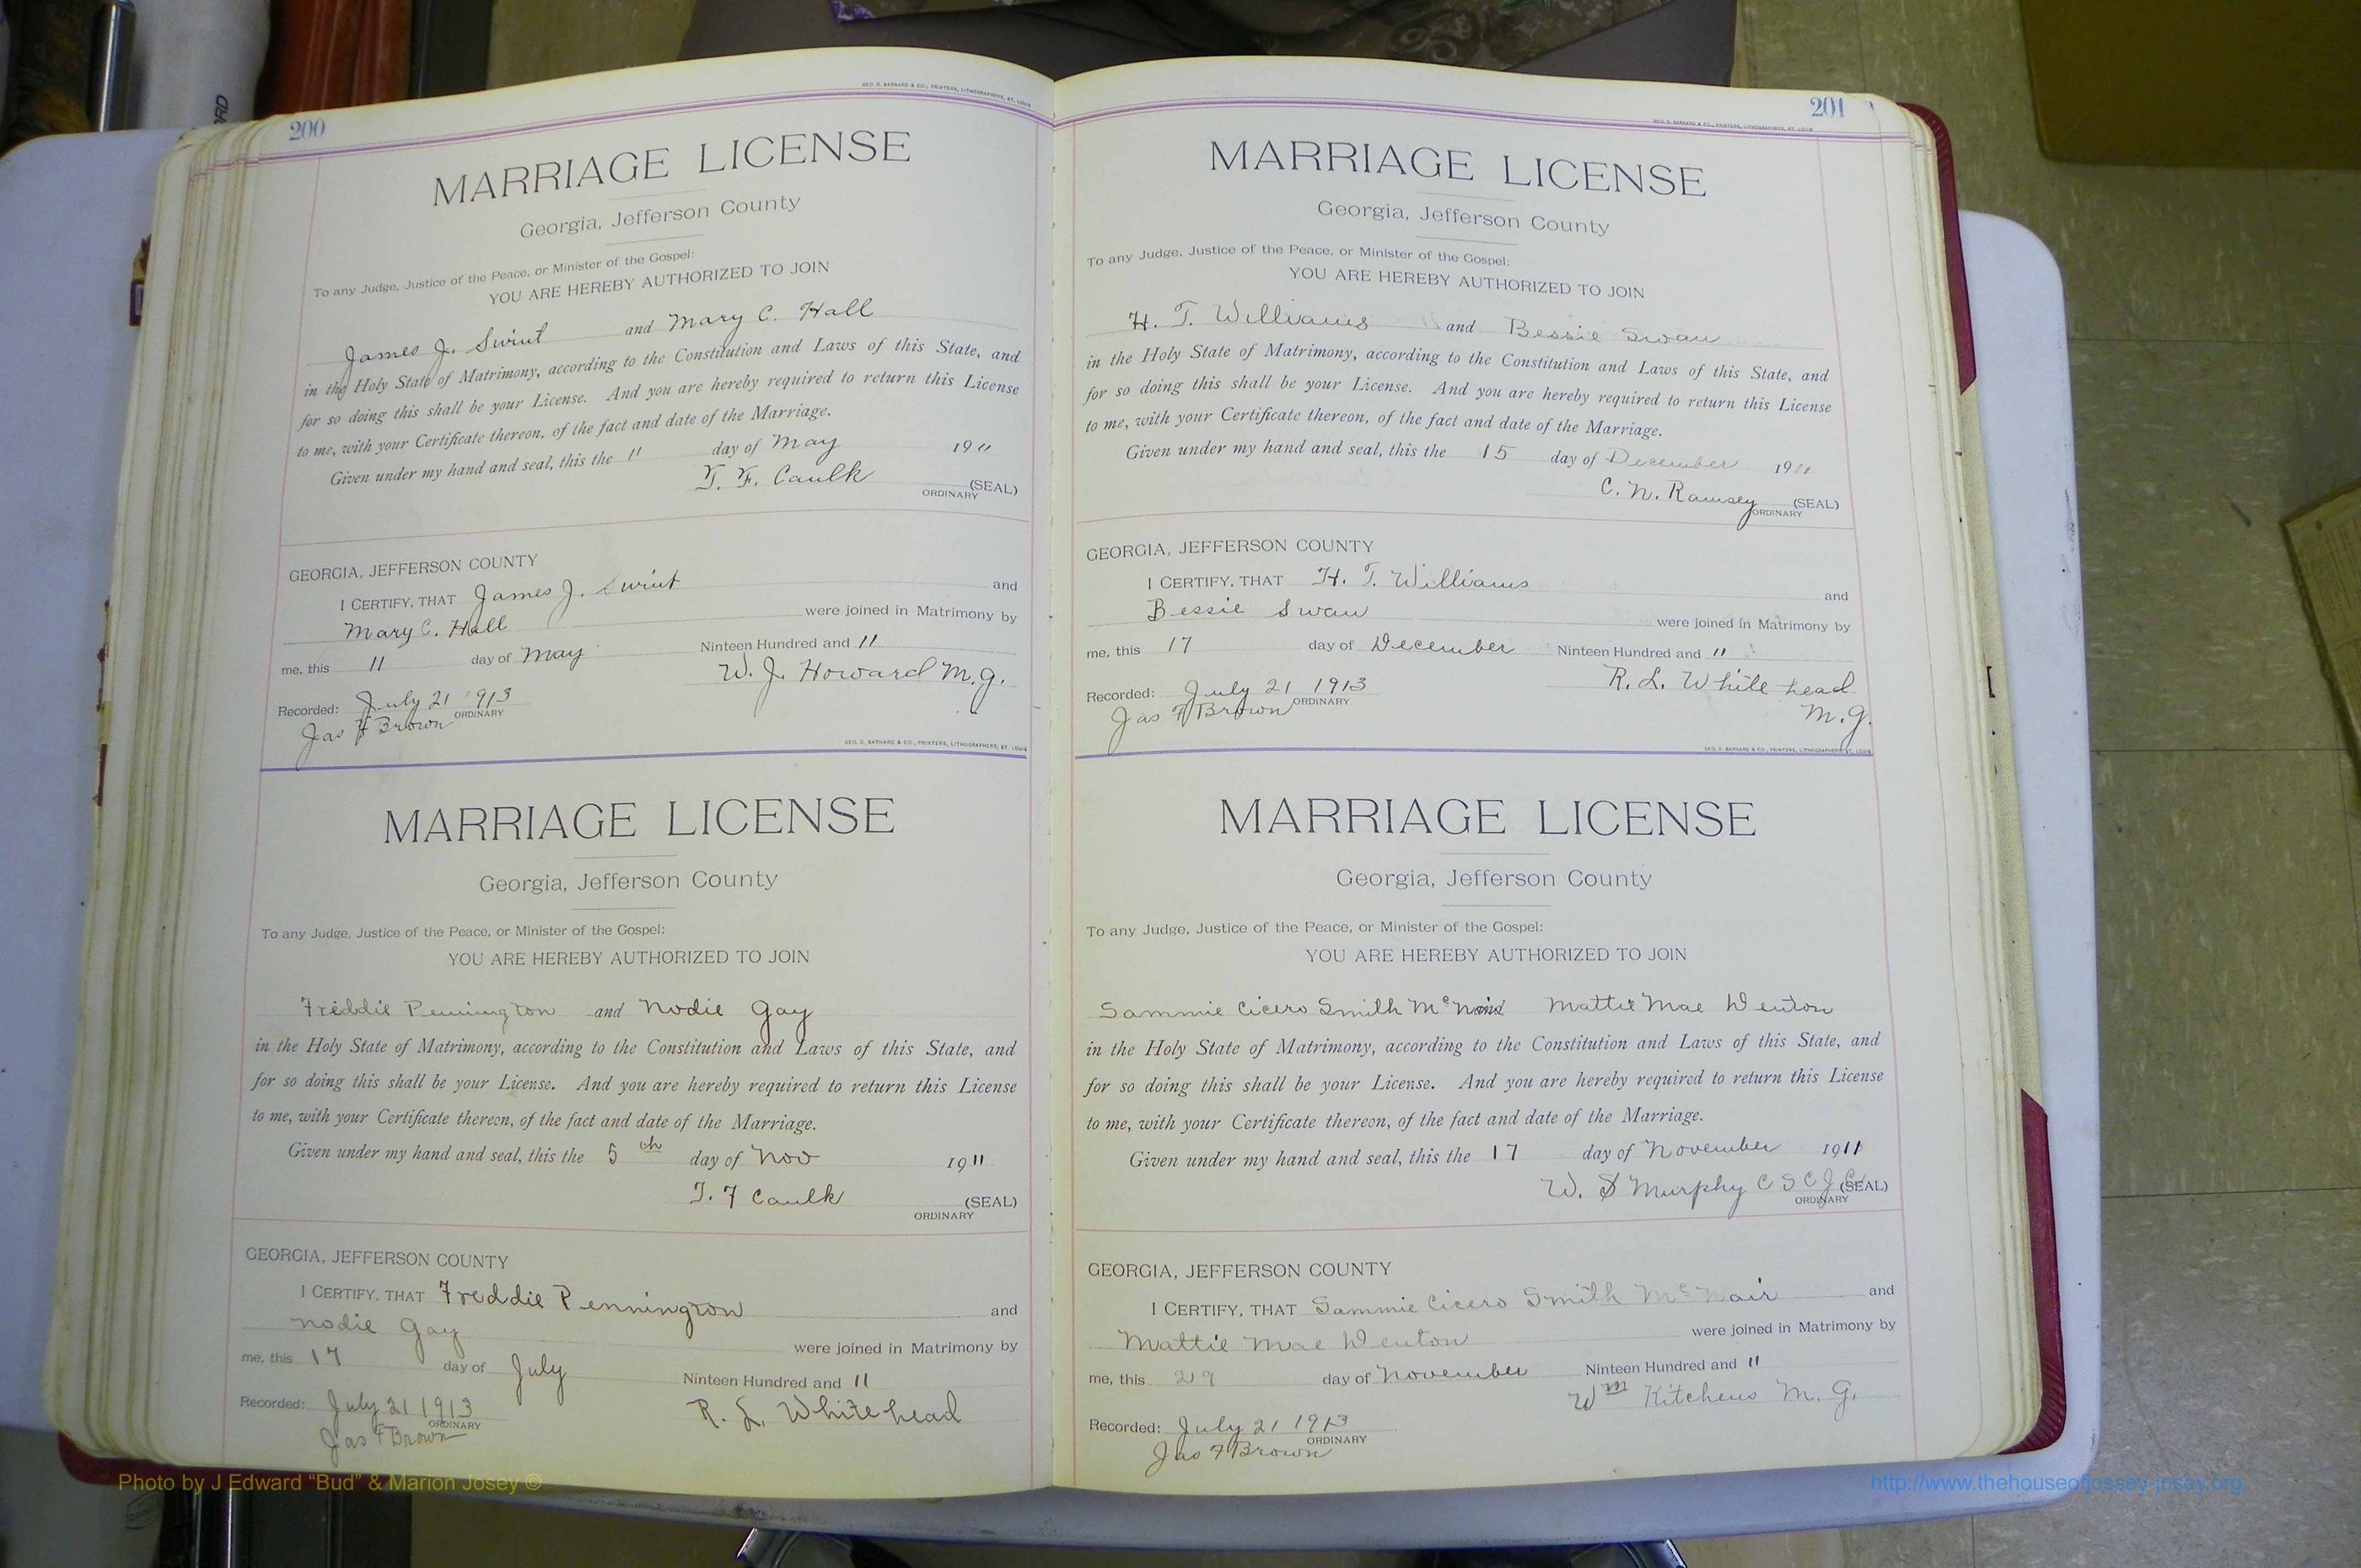 200
GEO. D. BARNARD & CO., PRINTERS, LITHOGRAPHERS, ST. LOUIS
MARRIAGE LICENSE
Georgia, Jefferson County
To any Judge, Justice of the Peace, or Minister of the Gospel:
YOU ARE HEREBY AUTHORIZED TO JOIN
James J. Swint and Mary C. Hall
in the Holy State of Matrimony, according to the Constitution and Laws of this State, and
for so doing this shall be your License. And you are hereby required to return this License
to me, with your Certificate thereon, of the fact and date of the Marriage.
Given under my hand and seal, this the 11 day of May 1911
T. F. Caulk (SEAL)
ORDINARY
GEORGIA, JEFFERSON COUNTY
I CERTIFY, THAT James J. Swint and
Mary C. Hall were joined in Matrimony by
me, this 11 day of May Ninteen Hundred and 11
W. J. Howard M.G.
Recorded: July 21 1913
Jas F Brown ORDINARY
GEO. D. BARNARD & CO., PRINTERS, LITHOGRAPHERS, ST. LOUIS
MARRIAGE LICENSE
Georgia, Jefferson County
To any Judge, Justice of the Peace, or Minister of the Gospel:
YOU ARE HEREBY AUTHORIZED TO JOIN
Freddie Pennington and Nodie Gay
in the Holy State of Matrimony, according to the Constitution and Laws of this State, and
for so doing this shall be your License. And you are hereby required to return this License
to me, with your Certificate thereon, of the fact and date of the Marriage.
Given under my hand and seal, this the 5th day of Nov 1911
T. F Caulk (SEAL)
ORDINARY
GEORGIA, JEFFERSON COUNTY
I CERTIFY, THAT Freddie Pennington and
Nodie Gay were joined in Matrimony by
me, this 17 day of July Ninteen Hundred and 11
Recorded: July 21 1913 R. L. Whitehead
ORDINARY
Jas F Brown
201
GEO. D. BARNARD & CO., PRINTERS, LITHOGRAPHERS, ST. LOUIS
MARRIAGE LICENSE
Georgia, Jefferson County
To any Judge, Justice of the Peace, or Minister of the Gospel:
YOU ARE HEREBY AUTHORIZED TO JOIN
H. T. Williams and Bessie Swan
in the Holy State of Matrimony, according to the Constitution and Laws of this State, and
for so doing this shall be your License. And you are hereby required to return this License
to me, with your Certificate thereon, of the fact and date of the Marriage.
Given under my hand and seal, this the 15 day of December 1911
C. N. Ramsey (SEAL)
ORDINARY
GEORGIA, JEFFERSON COUNTY
I CERTIFY, THAT H. T. Williams and
Bessie Swan were joined in Matrimony by
me, this 17 day of December Ninteen Hundred and 11
Recorded: July 21 1913 R. L. Whitehead
Jas F Brown ORDINARY M.G.
GEO. D. BARNARD & CO., PRINTERS, LITHOGRAPHERS, ST. LOUIS
MARRIAGE LICENSE
Georgia, Jefferson County
To any Judge, Justice of the Peace, or Minister of the Gospel:
YOU ARE HEREBY AUTHORIZED TO JOIN
Sammie Cicero Smith and Mattie Mae Denton
in the Holy State of Matrimony, according to the Constitution and Laws of this State, and
for so doing this shall be your License. And you are hereby required to return this License
to me, with your Certificate thereon, of the fact and date of the Marriage.
Given under my hand and seal, this the 17 day of November 1911
W. S Murphy C S C J C (SEAL)
ORDINARY
GEORGIA, JEFFERSON COUNTY
I CERTIFY, THAT Sammie Cicero Smith McNair and
Mattie Mae Denton were joined in Matrimony by
me, this 29 day of November Ninteen Hundred and 11
Wm Kitchens M. G.
Recorded: July 21 1913
ORDINARY
Jas F Brown
Photo by J Edward “Bud” & Marion Josey ©
http://www.thehouseofjossey-josey.org